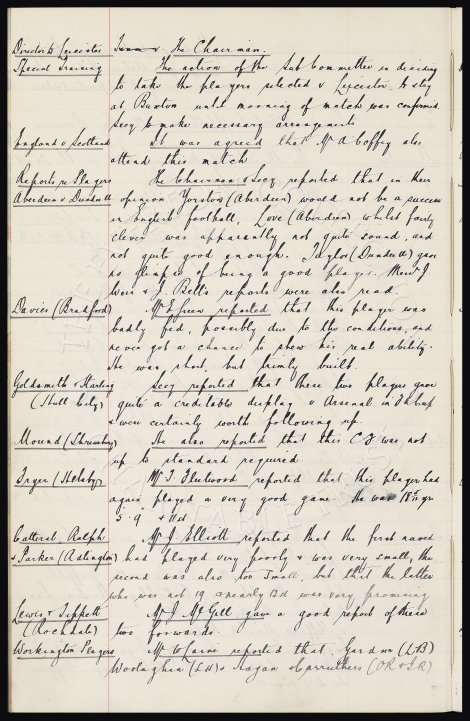 Director to Leicester
Team v. The Chairman.
Special Training
The action of the Sub Committee in deciding
to take the players selected v Leicester, to stay
at Buxton until morning of match was confirmed
Secy to make necessary arrangements
England v Scotland
It was agreed that Mr A Coffey also
attend this match
Reports re Players
The Chairman & Secy reported that in their
Aberdeen v Dundee U
opinion Yorston (Aberdeen) would not be a success
in English football, Love (Aberdeen) whilst fairly
clever was apparently not quite sound, and
not quite good enough. Taylor (Dundee U) gave
no glimpse of being a good player. Messrs J
Weir & J Bell's reports were also read.
Davies (Bradford)
Mr E Green reported that this player was
badly fed, possibly due to the conditions, and
never got a chance to show his real ability.
He was short, but trimly built.
Goldsmith & Starling
Secy reported that these two players gave
(Hull City)
quite a creditable display v Arsenal in E Cup
& were certainly worth following up.
Mound (Shrewsbury)
He also reported that this CF was not
up to standard required.
(Helsby)
Mr T. Fleetwood reported that this player had
again played a very good game. He was 18 yrs
5-9" & 11st
Catterall, Ralph
Mr J Elliott reported that the first named
& Parker (Adlington)
had played very poorly & was very small, the
second was also too small, but that the latter
who was not 19 & nearly 12st was very promising
Lewis & Tippett
Mr J. McGill gave a good report of these
(Rochdale)
two forwards.
Workington Players
Mr W Caine reported that Gardner (LB)
(LH) & & Carruthers (OR & IR)